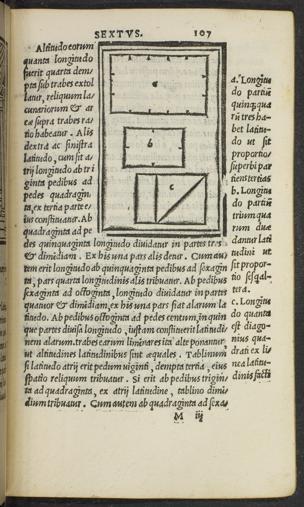 SEXTVS. 107
Altitudo eorum
quanta longitudo
fuerit quarta dem/
pta sub trabes extol
latur, reliquum la/
cunariorum & ar
cæ supra trabes ra/
tio habeatur. Alis
dextra ac sinistra
latitudo, cum sit a/
trij longitudo ab tri
ginta pedibus ad
pedes quadragin/
ta, ex tertia parte e/
ius constituatur. Ab
quadraginta ad pe
des quinquaginta longitudo diuidatur in partes tres
& dimidiam. Ex his una pars alis detur. Cum au/
tem erit longitudo ab quinquaginta pedibus ad sexagin
ta, pars quarta longitudinis alis tribuatur. Ab pedibus
sexaginta ad octoginta, longitudo diuidatur in partes
quatuor & dimidiam, ex his una pars fiat alarum la
titudo. Ab pedibus octoginta ad pedes centum, in quin
que partes diuisa longitudo, iustam constituerit latitudi/
nem alarum. trabes earum liminares ita alte ponantur,
ut altitudines latitudinibus sint æquales. Tablinum
si latitudo atrij erit pedum uiginti, dempta tertia, eius
spatio reliquum tribuatur. Si erit ab pedibus trigin/
ta ad quadraginta, ex atrij latitudine, tablino dimi/
dium tribuatur. Cum autem ab quadraginta ad sexa/
M iij
a
b
c
a. Longitu
do partiũ
quinq; qua
rũ tres ha/
bet latitu/
do ut sit
proportio
superbi par
tiens tertias
b. Longitu
do partiũ
trium qua
rum duæ
dantur lati
tudini ut
sit propor/
tio sesqual/
tera.
c. Longitu
do quanta
est diago/
nius qua/
drati ex li/
nea latitu/
dinis facti